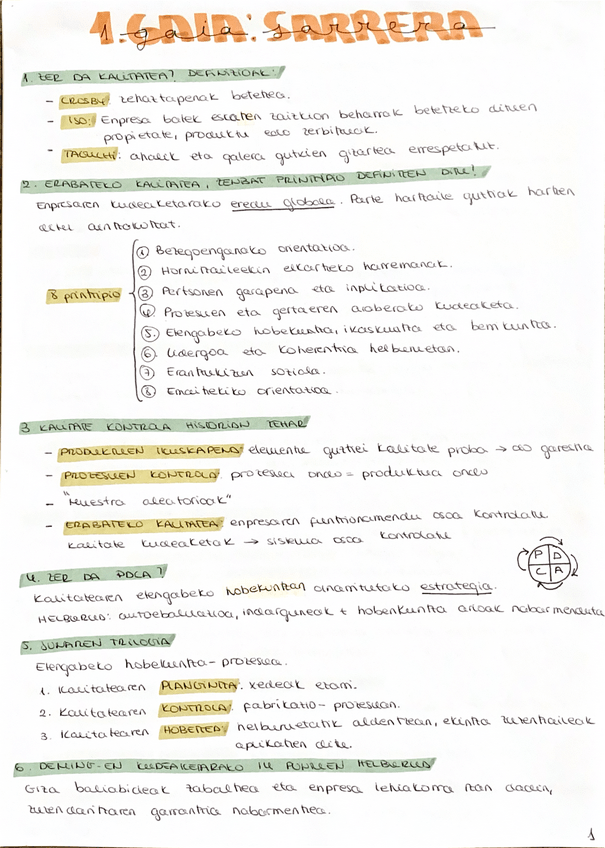 1.GAIA: SARRERA
1. gaia: sarrera
1. ZER DA KALITATEA? DEFINIZIOAK:
- CROSBY: zehaztapenak betetzea.
- ISO: Enpresa batek eskatzen zaizkion beharrak betetzeko dituen
propietate, produktu edo zerbitzuak.
- TAGUCHI: ahalik eta galera gutxien gizartea errespetatuz.
2. ERABATEKO KALITATEA, ZENBAT PRINTZIPIO DEFINITZEN DITU?
Enpresaren kudeaketarako eredu globala. Parte hartzaile guztiak hartzen
ditu aintzakotzat.
8 printzipio
1 Bezeroenganako orientazioa.
2 Hornitzaileekin elkarteko harremanak.
3 Pertsonen garapena eta inplikazioa.
4 Prozesuen eta gertaeren araberako kudeaketa.
5. Etengabeko hobekuntza, ikaskuntza eta berrikuntza.
6. Lidergoa eta koherentzia helburuetan.
7 Erantzukizun soziala.
8 Emaitzekiko orientazioa.
3 KALITATE KONTROLA HISTORIAN ZEHAR
- PRODUKTUEN IKUSKAPENA: elementu guztiei kalitate proba → oso garestia
- PROZESUEN KONTROLA: prozesua ondo = produktua ondo
- "Muestra aleatorioak"
- ERABATEKO KALITATEA: enpresaren funtzionamendu osoa kontrolatu
kalitate kudeaketak → sistema osoa kontrolatu
4. ZER DA PDCA?
P D
C A
Kalitatearen etengabeko hobekuntzan oinarritutako estrategia.
HELBURUA: autoebaluazioa, indarguneak + hobekuntza arloak nabarmenduta
5. JURAREN TRILOGIA
Etengabeko hobekuntza-prozesua.
1. Kalitatearen PLANGINTZA: xedeak ezarri.
2. Kalitatearen KONTROLA: fabrikazio-prozesuan.
3. Kalitatearen HOBETZEA: helburuetatik aldentzean, ekintza zuzentzaileak
aplikatzen dira.
6. DEMING-EN KUDEAKETARAKO 14 PUNTUEN HELBURUA
Giza baliabideak zabaltzea eta enpresa lehiakorra izan dadin,
zuzendaritzaren garrantzia nabarmentzea.
1